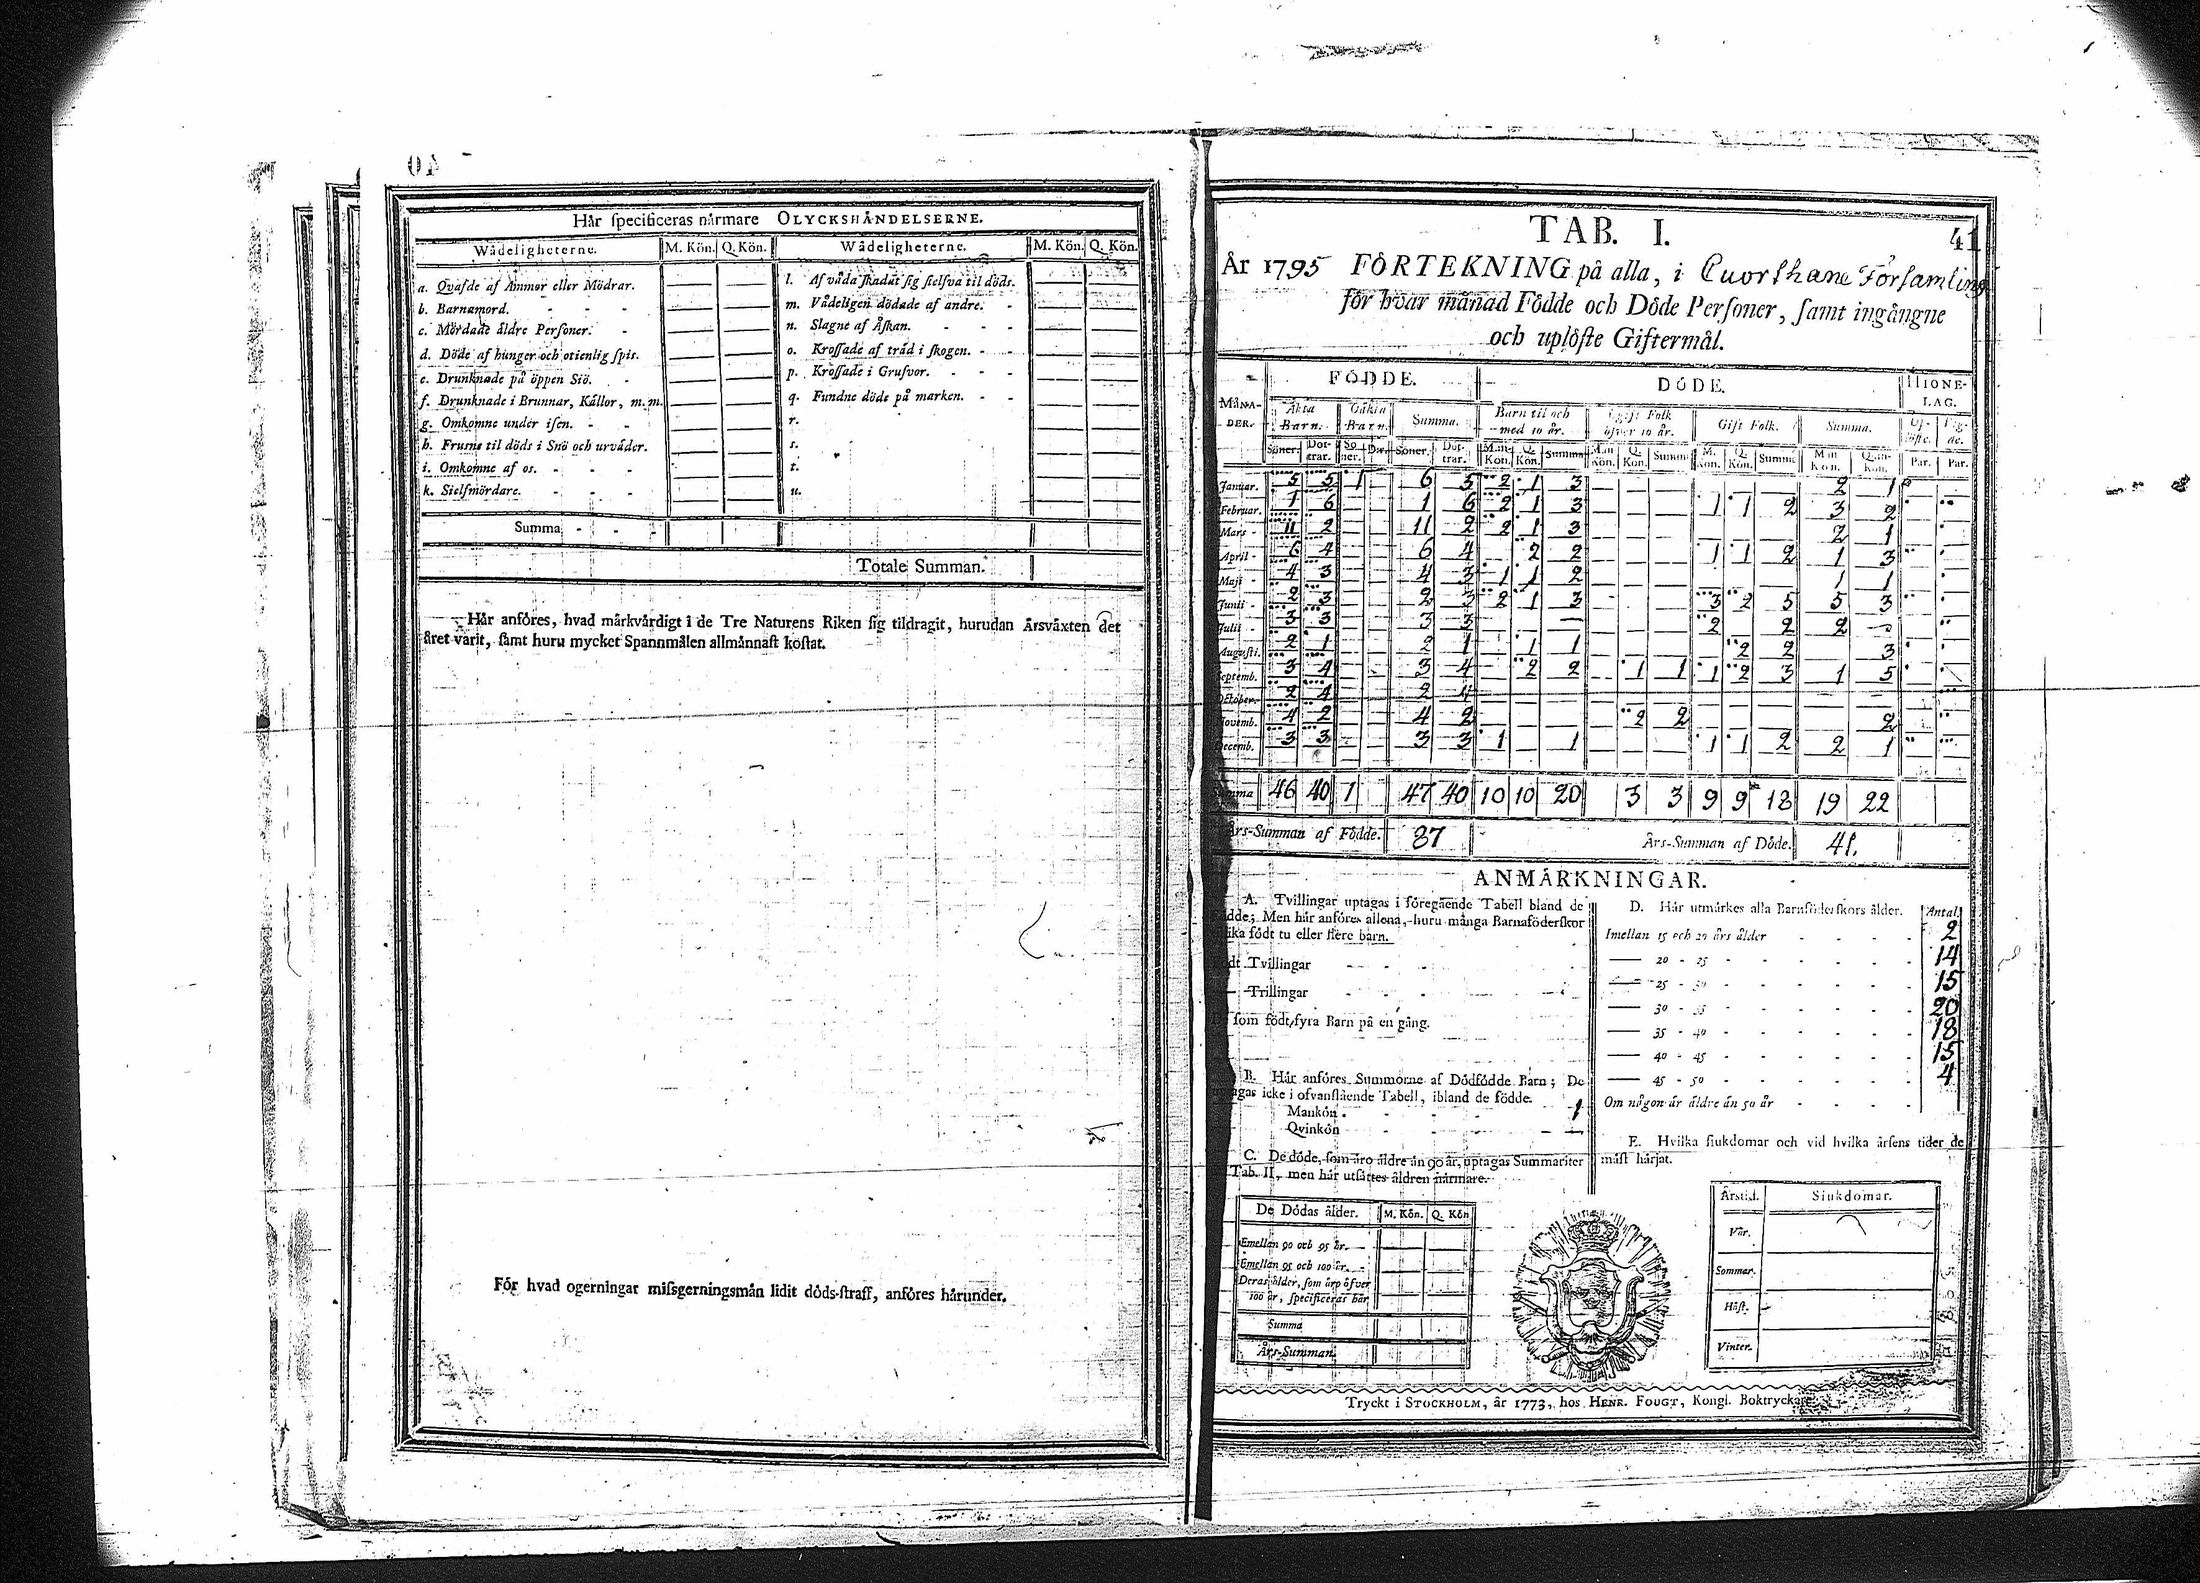 40
Hår specificeras nårmare OLYCKSHÅNDELSERNE.
Wådeligheterne. M. Kön. Q. Kön. Wådeligheterne. M. Kön. Q. Kön.
a. Qvafde af Ammor eller Mödrar.
b. Barnamord.
c. Mördade åldre Personer.
d. Döde af hunger och otienlig spis.
e. Drunknade på öppen Siö.
f. Drunknade i Brunnar, Kållor, m.m.
g. Omkomne under isen.
h. Frusne til döds i Snö och urvåder.
i. Omkomne af os.
k. Sielfmördare.
l. Af våda skadat sig sielfva til döds.
m. Vådeligen dödade af andre.
n. Slagne af Åskan.
o. Krossade af tråd i skogen.
p. Krossade i Grufvor.
q. Fundne döde på marken.
r.
s.
t.
u.
Summa
Totale Summan.
Hår anföres, hvad mårkvårdigt i de Tre Naturens Riken sig tildragit, hurudan Årsvåxten det
året varit, samt huru mycket Spannmålen allmånnast kostat.
För hvad ogerningar missgerningsmån lidit döds-straff, anföres hårunder.
TAB. I.
41
År 1795 FÖRTEKNING på alla, i Cuorthane Församling
för hvar månad Födde och Döde Personer, samt ingångne
och uplöste Giftermål.
MÅNA-DER. FÖDDE. DÖDE. HIONE-LAG.
Åkta Barn. Oåkta Barn. Summa. Barn til och med 10 år. Ogift Folk öfver 10 år. Gift Folk. Summa.
Söner. Döt-trar. So ner. Söner. Döt-trar. M. Kön. Q. Kön. Summa M. Kön. Q. Kön. Summ M. Kön. Q. Kön. Summa M. Kön. Q. Kön. Par. Par.
Januar. 5 5 1 6 5 2 1 3 2 1
Februar. 1 6 1 6 2 1 3 1 1 2 3 2
Mars 11 2 11 2 2 1 3 2 1
April 6 4 6 4 2 2 1 1 2 1 3
Maji 4 3 4 3 1 1 2 1 1
Junii 2 3 2 3 2 1 3 3 2 5 5 3
Julii 3 3 3 3 2 2 2
Augusti. 2 1 2 1 1 1 2 2 3
Septemb. 3 4 3 4 2 2 1 1 1 2 3 1 5
October. 2 4 2 4
Novemb. 4 2 4 2 2 2 2
Decemb. 3 3 3 3 1 1 1 1 2 2 1
Summa 46 40 1 47 40 10 10 20 3 3 9 9 18 19 22
Års-Summan af Födde. 87 Års-Summan af Döde. 41.
ANMÅRKNINGAR.
A. Tvillingar uptagas i föregående Tabell bland de
Födde; Men hår anföres allena, huru många Barnaföderskor
lika födt tu eller flere barn.
Födt Tvillingar
Trillingar
som födt fyra Barn på en gång.
B. Hår anföres Summorne af Dödfödde Barn; De
uptagas icke i ofvanstående Tabell, ibland de födde.
Mankön. 1
Qvinkön
C. De döde, som åro åldre ån 90 år, uptagas Summariter
Tab. II, men hår utsåttes åldren nårmare.
De Dödas ålder. M. Kön. Q. Kön
Emellan 90 och 95 år.
Emellan 95 och 100 år.
Deras ålder, som åro öfver
100 år, specificeras hår
Summa
Års-Summan.
D. Hår utmårkes alla Barnföderskors ålder. Antal.
Imellan 15 och 20 års ålder 2
20 - 25 14
25 - 30 15
30 - 35 20
35 - 40 18
40 - 45 15
45 - 50 4
Om någon år åldre ån 50 år
E. Hvilka siukdomar och vid hvilka årsens tider de
måst hårjat.
Årstid. Siukdomar.
Vår.
Sommar.
Höst.
Vinter.
Tryckt i STOCKHOLM, år 1773, hos HENR. FOUGT, Kongl. Boktryckare